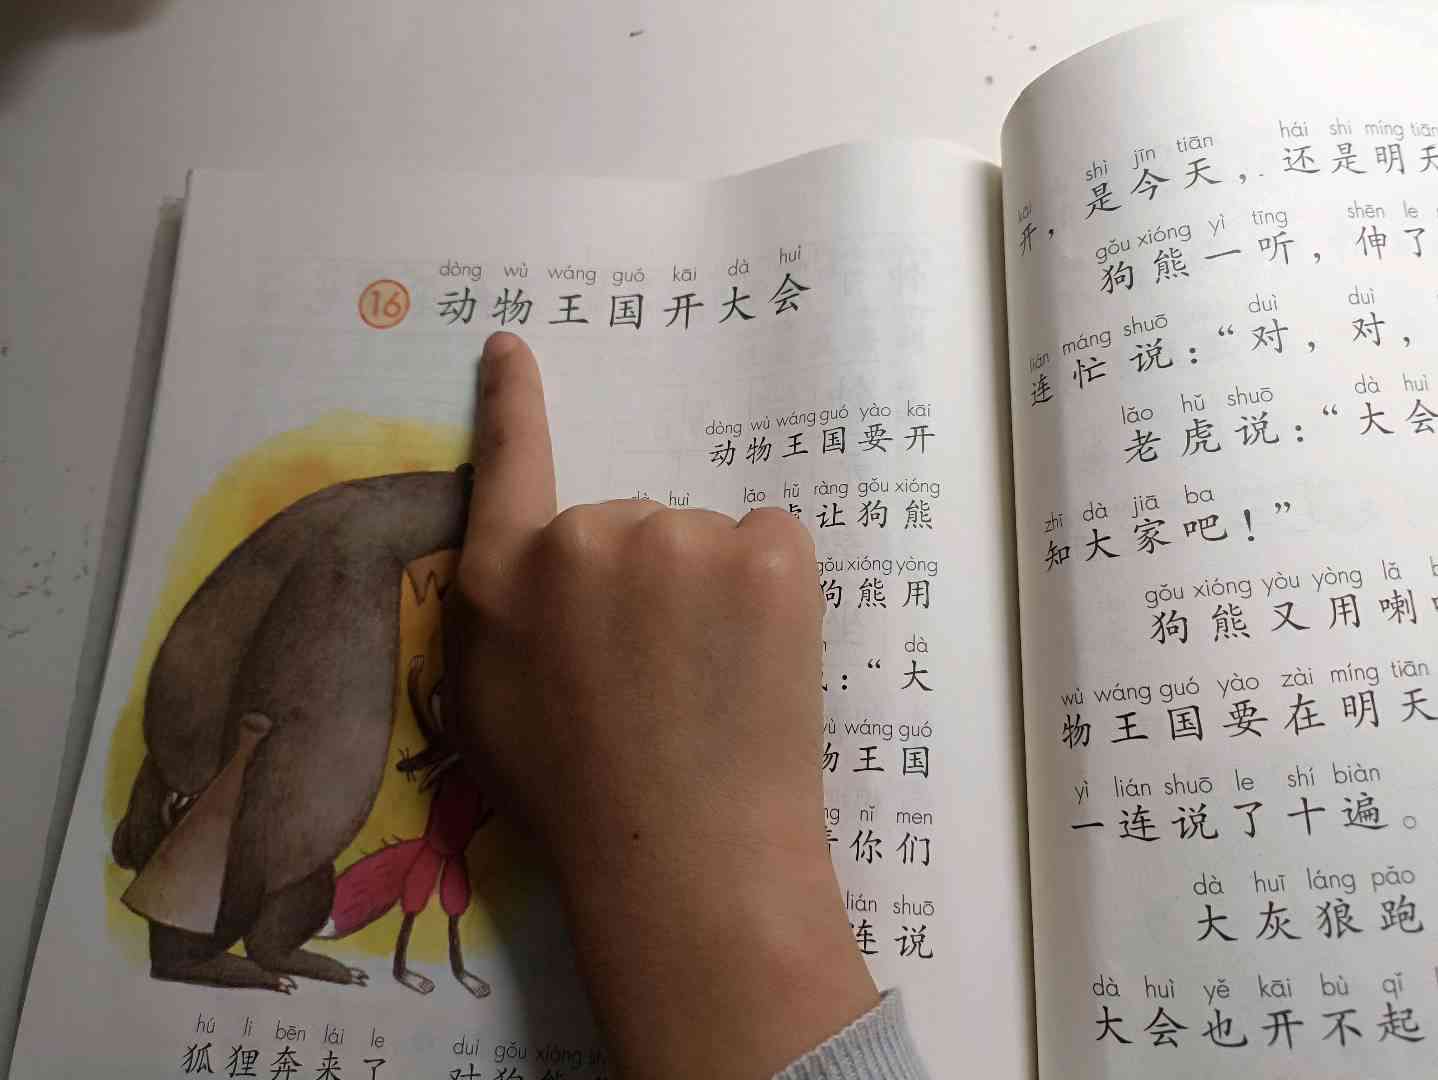 dòng wù wáng guó kāi dà huì
16 动物王国开大会
dòng wù wáng guó yào kāi
动物王国要开
huì lǎo hǔ ràng gǒu xióng
虎让狗熊
gǒu xióng yòng
狗熊用
dà
：“大
wù wáng guó
物王国
nǐ men
你们
lián shuō
连说
hú li bēn lái le
狐狸奔来了
duì gǒu xióng
对狗熊
shì jīn tiān hái shi míng tiān
开，是今天，还是明天
gǒu xióng yì tīng shēn le
狗熊一听，伸了
lián máng shuō duì duì
连忙说：“对，对，
lǎo hǔ shuō dà huì
老虎说：“大会
zhī dà jiā ba
知大家吧！”
gǒu xióng yòu yòng lǎ
狗熊又用喇
wù wáng guó yào zài míng tiān
物王国要在明天
yì lián shuō le shí biàn
一连说了十遍。
dà huī láng pǎo
大灰狼跑
dà huì yě kāi bù qǐ
大会也开不起